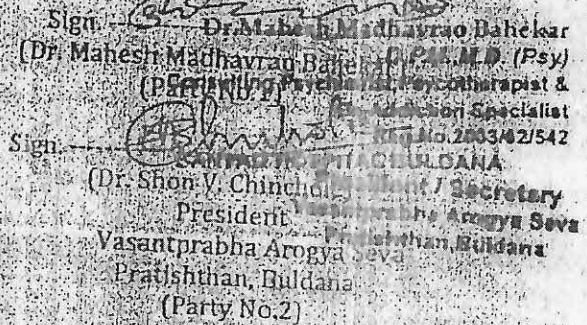 Sign. ---
Dr. Mahesh Madhavrao Bahekar
(Dr. Mahesh Madhavrao Bahekar) D.P.M. M.D. (Psy)
(Party No.1) Consulting Psychiatrist, Psychotherapist &
Specialist
Reg.No.2003/42/542
Sign. ---
BULDANA
(Dr. Shon V. Chincho President / Secretary
President Vasantprabha Arogya Seva
Vasantprabha Arogya Seva Pratishthan, Buldana
Pratishthan, Buldana
(Party No.2)